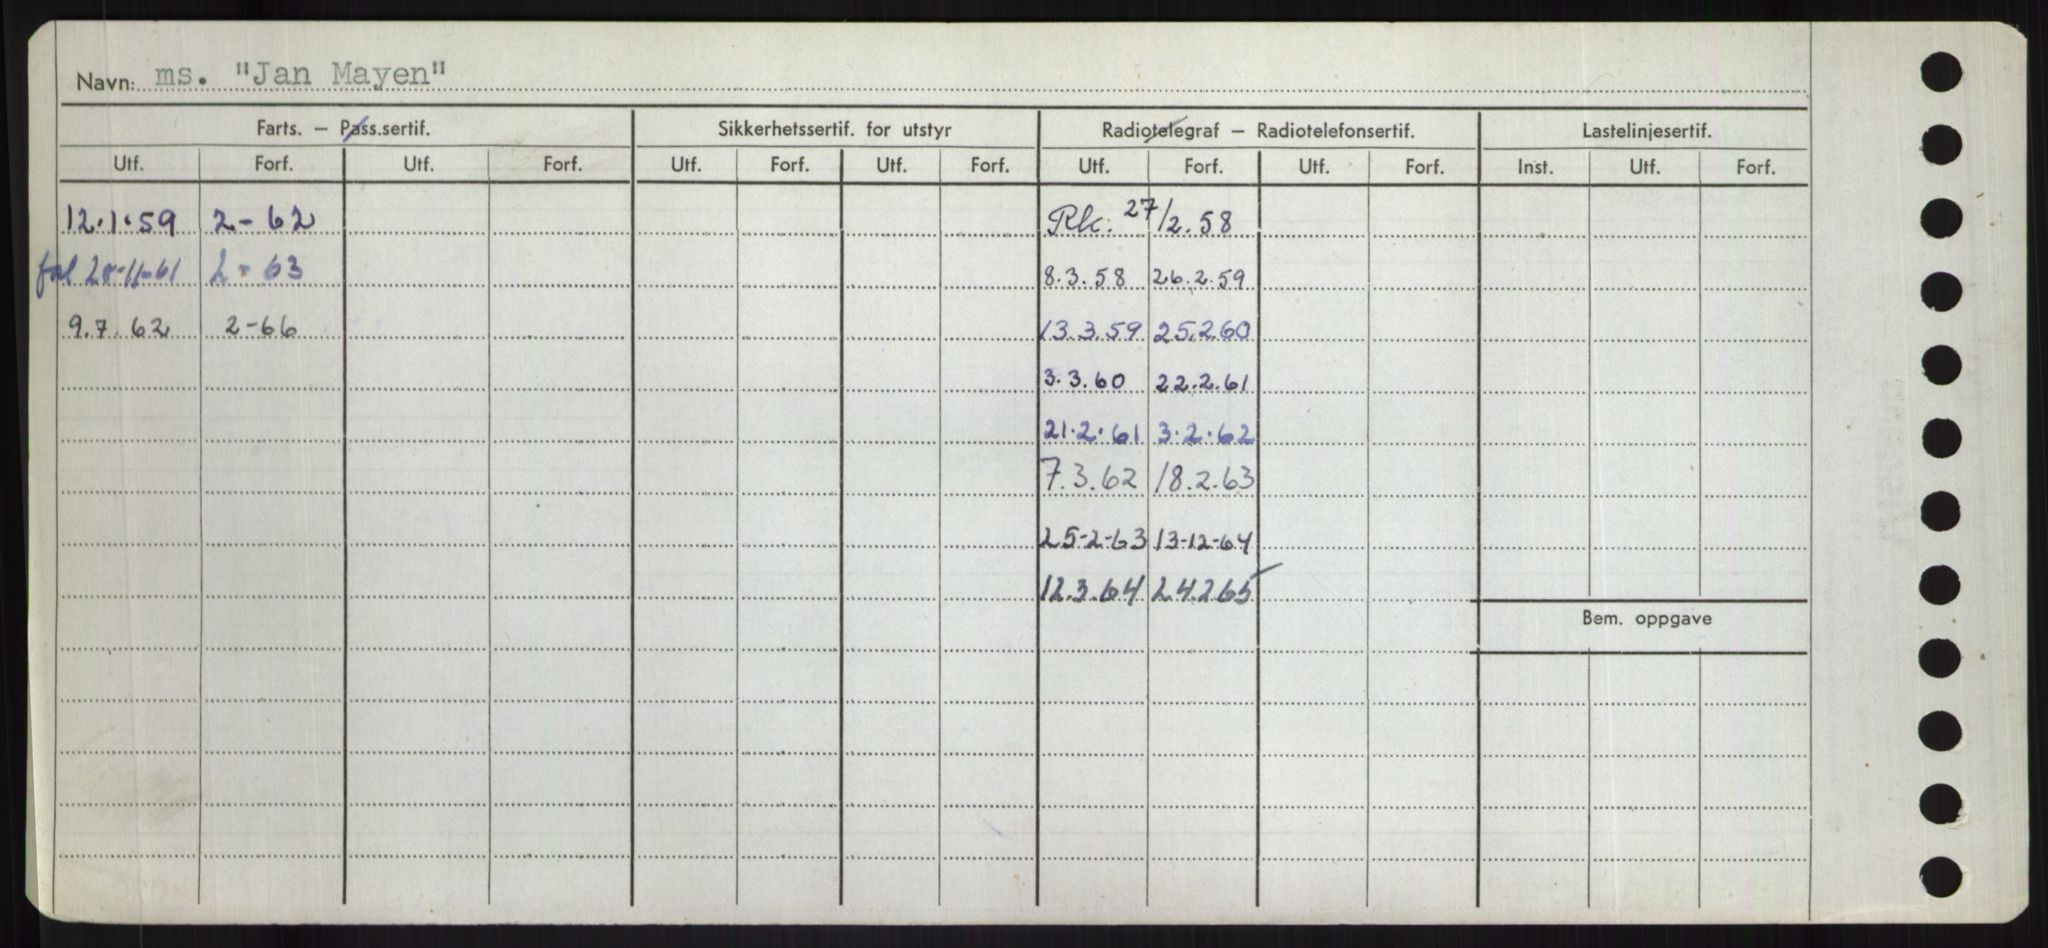 Navn: ms. "Jan Mayen"
Farts. — Pass.sertif. Sikkerhetssertif. for utstyr Radiotelegraf — Radiotelefonsertif. Lastelinjesertif.
Utf. Forf. Utf. Forf. Utf. Forf. Utf. Forf. Utf. Forf. Utf. Forf. Inst. Utf. Forf.
12.1.59 2-62 Rk. 27/2.58
forl 28-11-61 2-63 8.3.58 26.2.59
9.7.62 2-66 13.3.59 25.2.60
3.3.60 22.2.61
21.2.61 3.2.62
7.3.62 18.2.63
25-2-63 13-12-64
12.3.64 24.2.65
Bem. oppgave